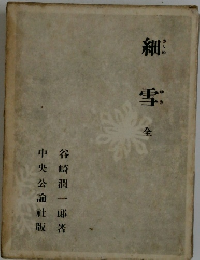 細雪
全
谷崎潤一郎著
中央公論社版